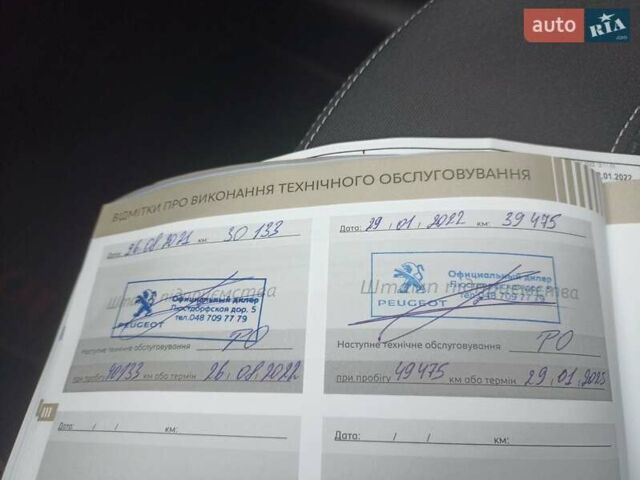 auto RIA .com
.01.2022
ВІДМІТКИ ПРО ВИКОНАННЯ ТЕХНІЧНОГО ОБСЛУГОВУВАННЯ
Дата: 26.08.2021 км: 30 133
Штамп підприємства
PEUGEOT
Официальный дилер
Люстдорфская дор. 5
тел.048 709 77 79
Наступне технічне обслуговування ТО
при пробігу 40133 км або термін 26.08.2022
Дата: / / км:
Дата: 29.01.2022 км: 39 475
Штамп підприємства
PEUGEOT
Официальный дилер
Люстдорфская дор. 5
тел.048 709 77 79
Наступне технічне обслуговування ТО
при пробігу 49475 км або термін 29.01.2023
Дата: / / км: